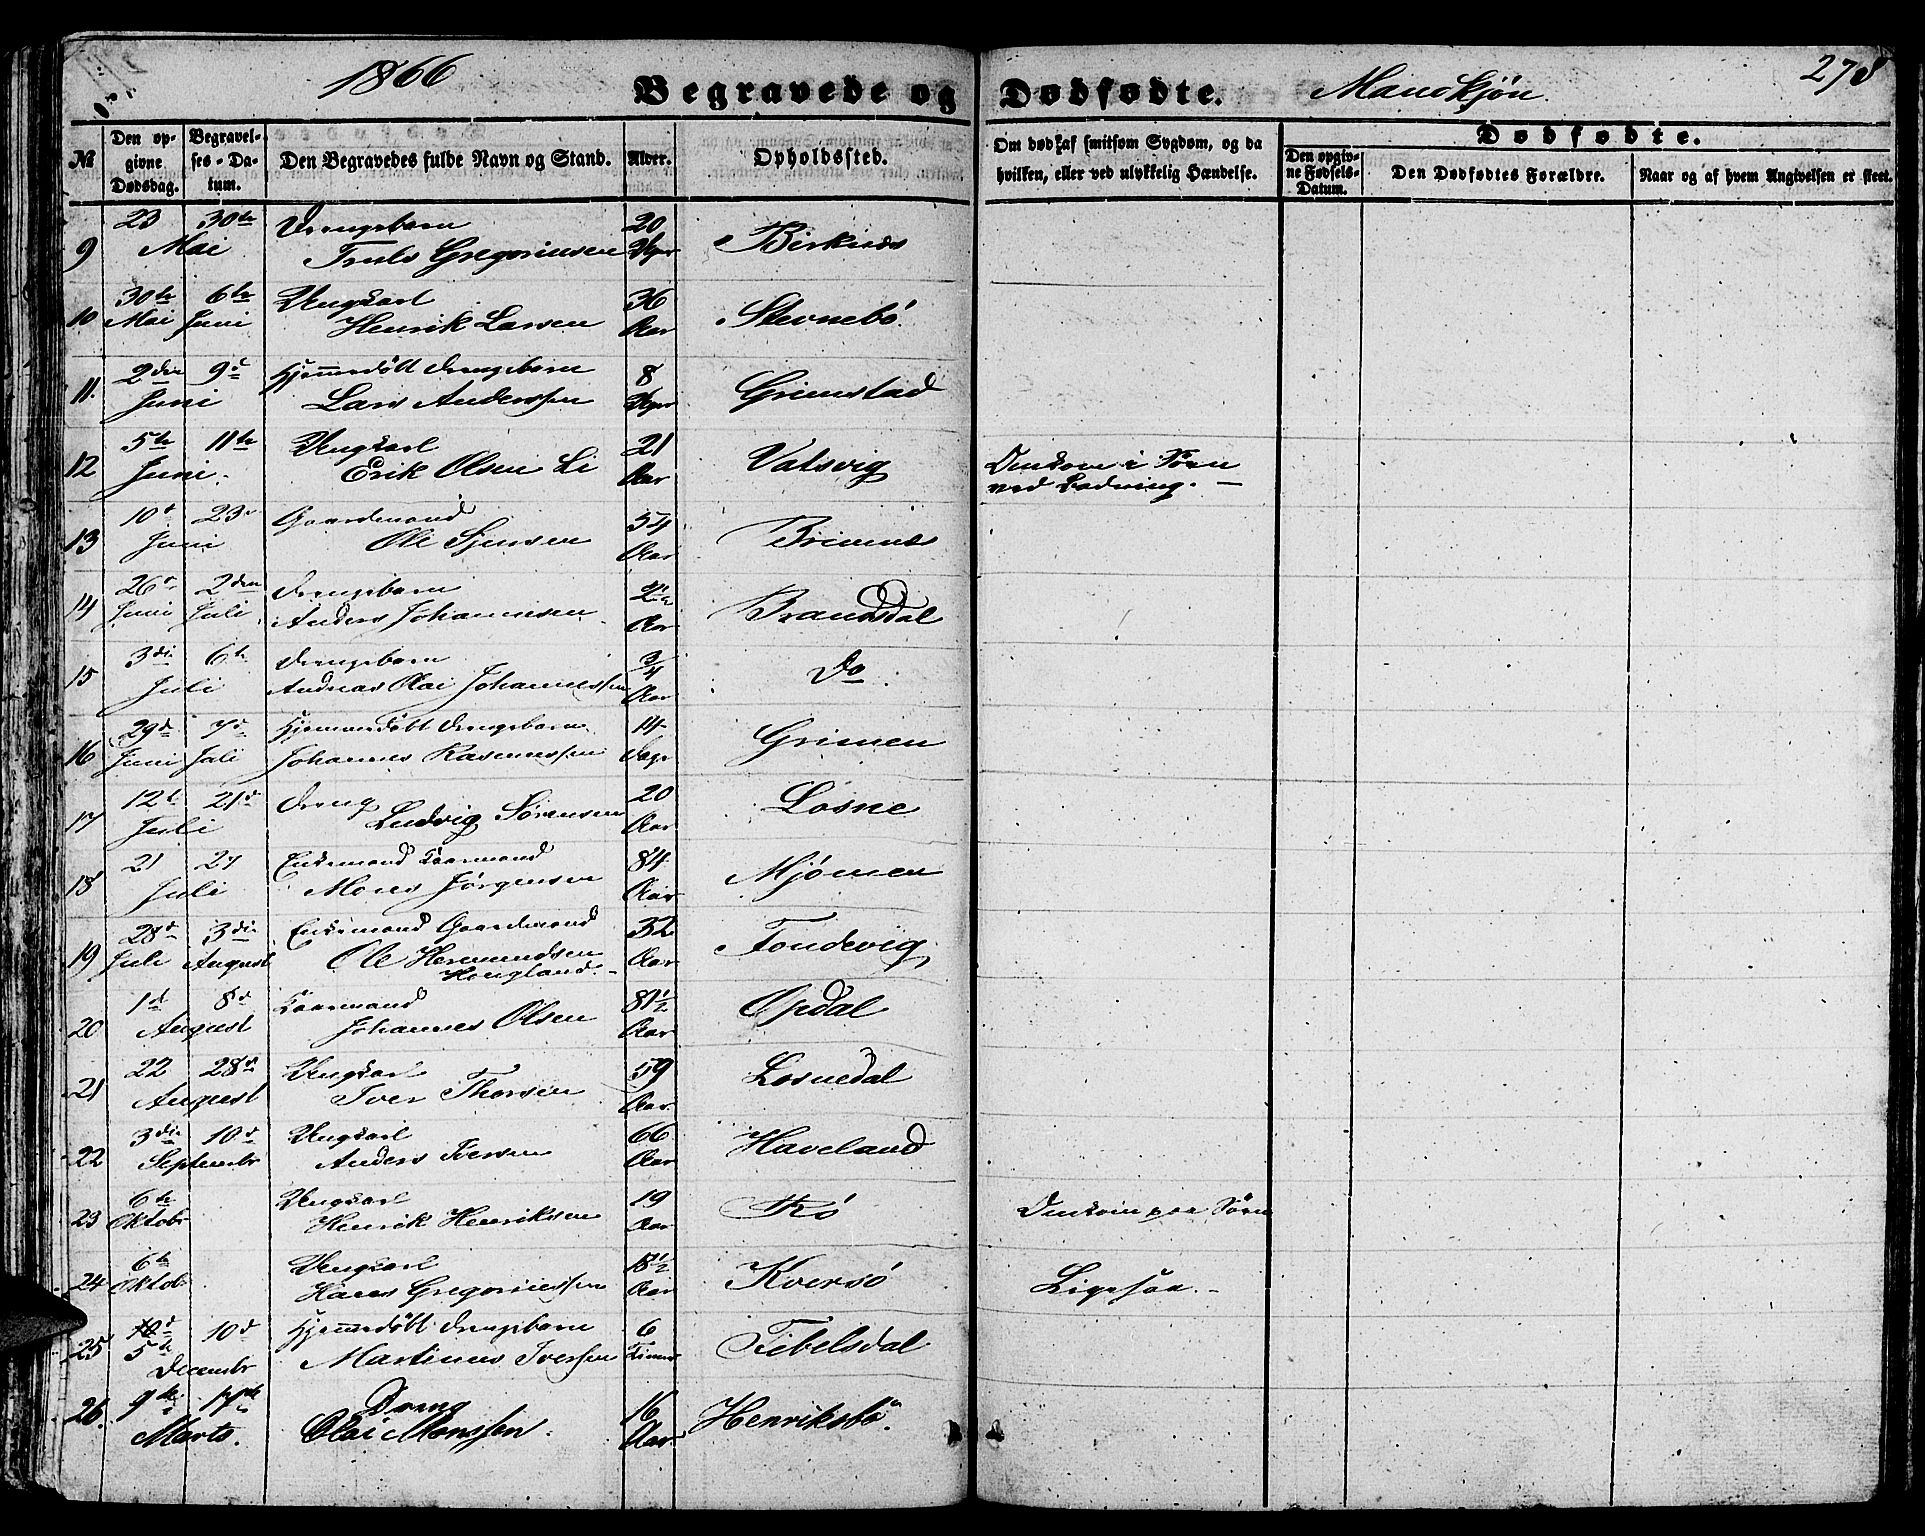 1866
Begravede og Dødfødte.
Mandkjøn.
278
№
Den opgivne Dødsdag.
Begravelses-Datum.
Den Begravedes fulde Navn og Stand.
Alder.
Opholdssted.
Om død af smitsom Sygdom, og da hvilken, eller ved ulykkelig Hændelse.
Dødfødte.
Den opgivne Fødsels-Datum.
Den Dødfødtes Forældre.
Naar og af hvem Angivelsen er skeet.
9 23 30te Drengebarn 20
Mai Truls Gregoriusen Uger Birknes
10 30te 6te Ungkarl 36
Mai Juni Henrik Larsen Aar Stevnebö.
11. 2den 9d Hjemmedöbt Drengebarn 8
Juni Lars Anderssen Uger Grimstad
12 5te 11te Ungkarl 21
Juni. Erik Olsen Li Aar Vatsvig Omkom i Söen
ved Ladvig. —
13 10d 23d Gaardmand 54
Juni Ole Aar Brimnes
14 26d 2den Drengebarn 2½
Juni Juli Anders Johannesen Aar Brandsdal
15 3die 6te Drengebarn ¾
Juli Andreas Olai Johannessen Aar Do
16 29d 7d Hjemmedöbt Drengebarn 14
Juni Juli Johannes Rasmussen Dage Grimen
17 12te 21d Dreng 20
Juli Ludvig Sörensen Aar Losne
18 21 27 Enkemand Kaarmand 84
Juli Mons Jörgensen Aar Mjömen
19 28d 3die Enkemand Gaardmand 32
Juli August Ole Hermundsen Aar Tondevig
Hougland.
20 1d 8d Kaarmand 81½
August Johannes Olsen Aar Opdal
21 22 28d Ungkarl 59
August Iver Thorsen Aar Losnedal
22 3die 10d Ungkarl 66
Septembr Anders Iversen Aar Haveland
23 6te Ungkarl 19
Oktobr Henrik Henriksen Aar Rö Omkom paa Söen
24 6te Ungkarl 18½
Oktobr Hans Gregoriussen Aar Kversö Ligesaa. —
25 5te 10d Hjemmedöbt Drengebarn 6
Decembr Martinus Iverssen Timer
26. 9de 17de Dreng 16
Marts. Olai Monssen. Aar. Henriksbö.